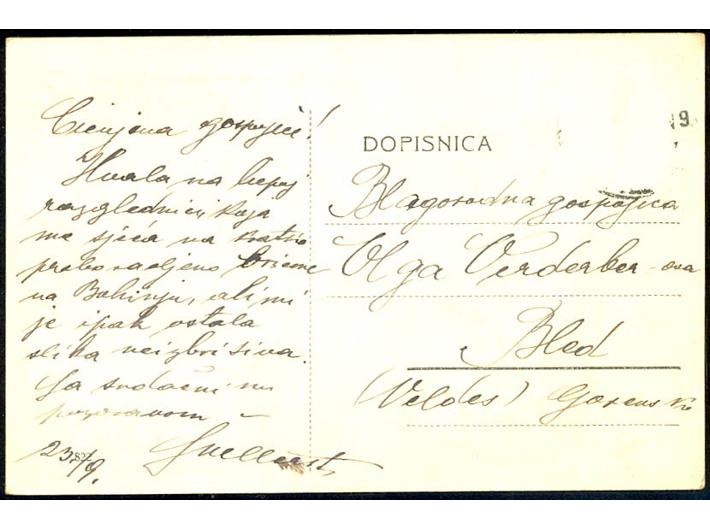 Cienjena gospojice!
Hvala na liepoj
razglednici koja
me sjeća na kratko
proboravljeno vrieme
na Bohinju, ali mi
je ipak ostala
slika neizbrisiva.
Sa srdačnim
pozdravom –
23/9.
DOPISNICA
9
Blagorodna gospojica
Olga Verderber-ova
Bled
(Veldes) Gorensko